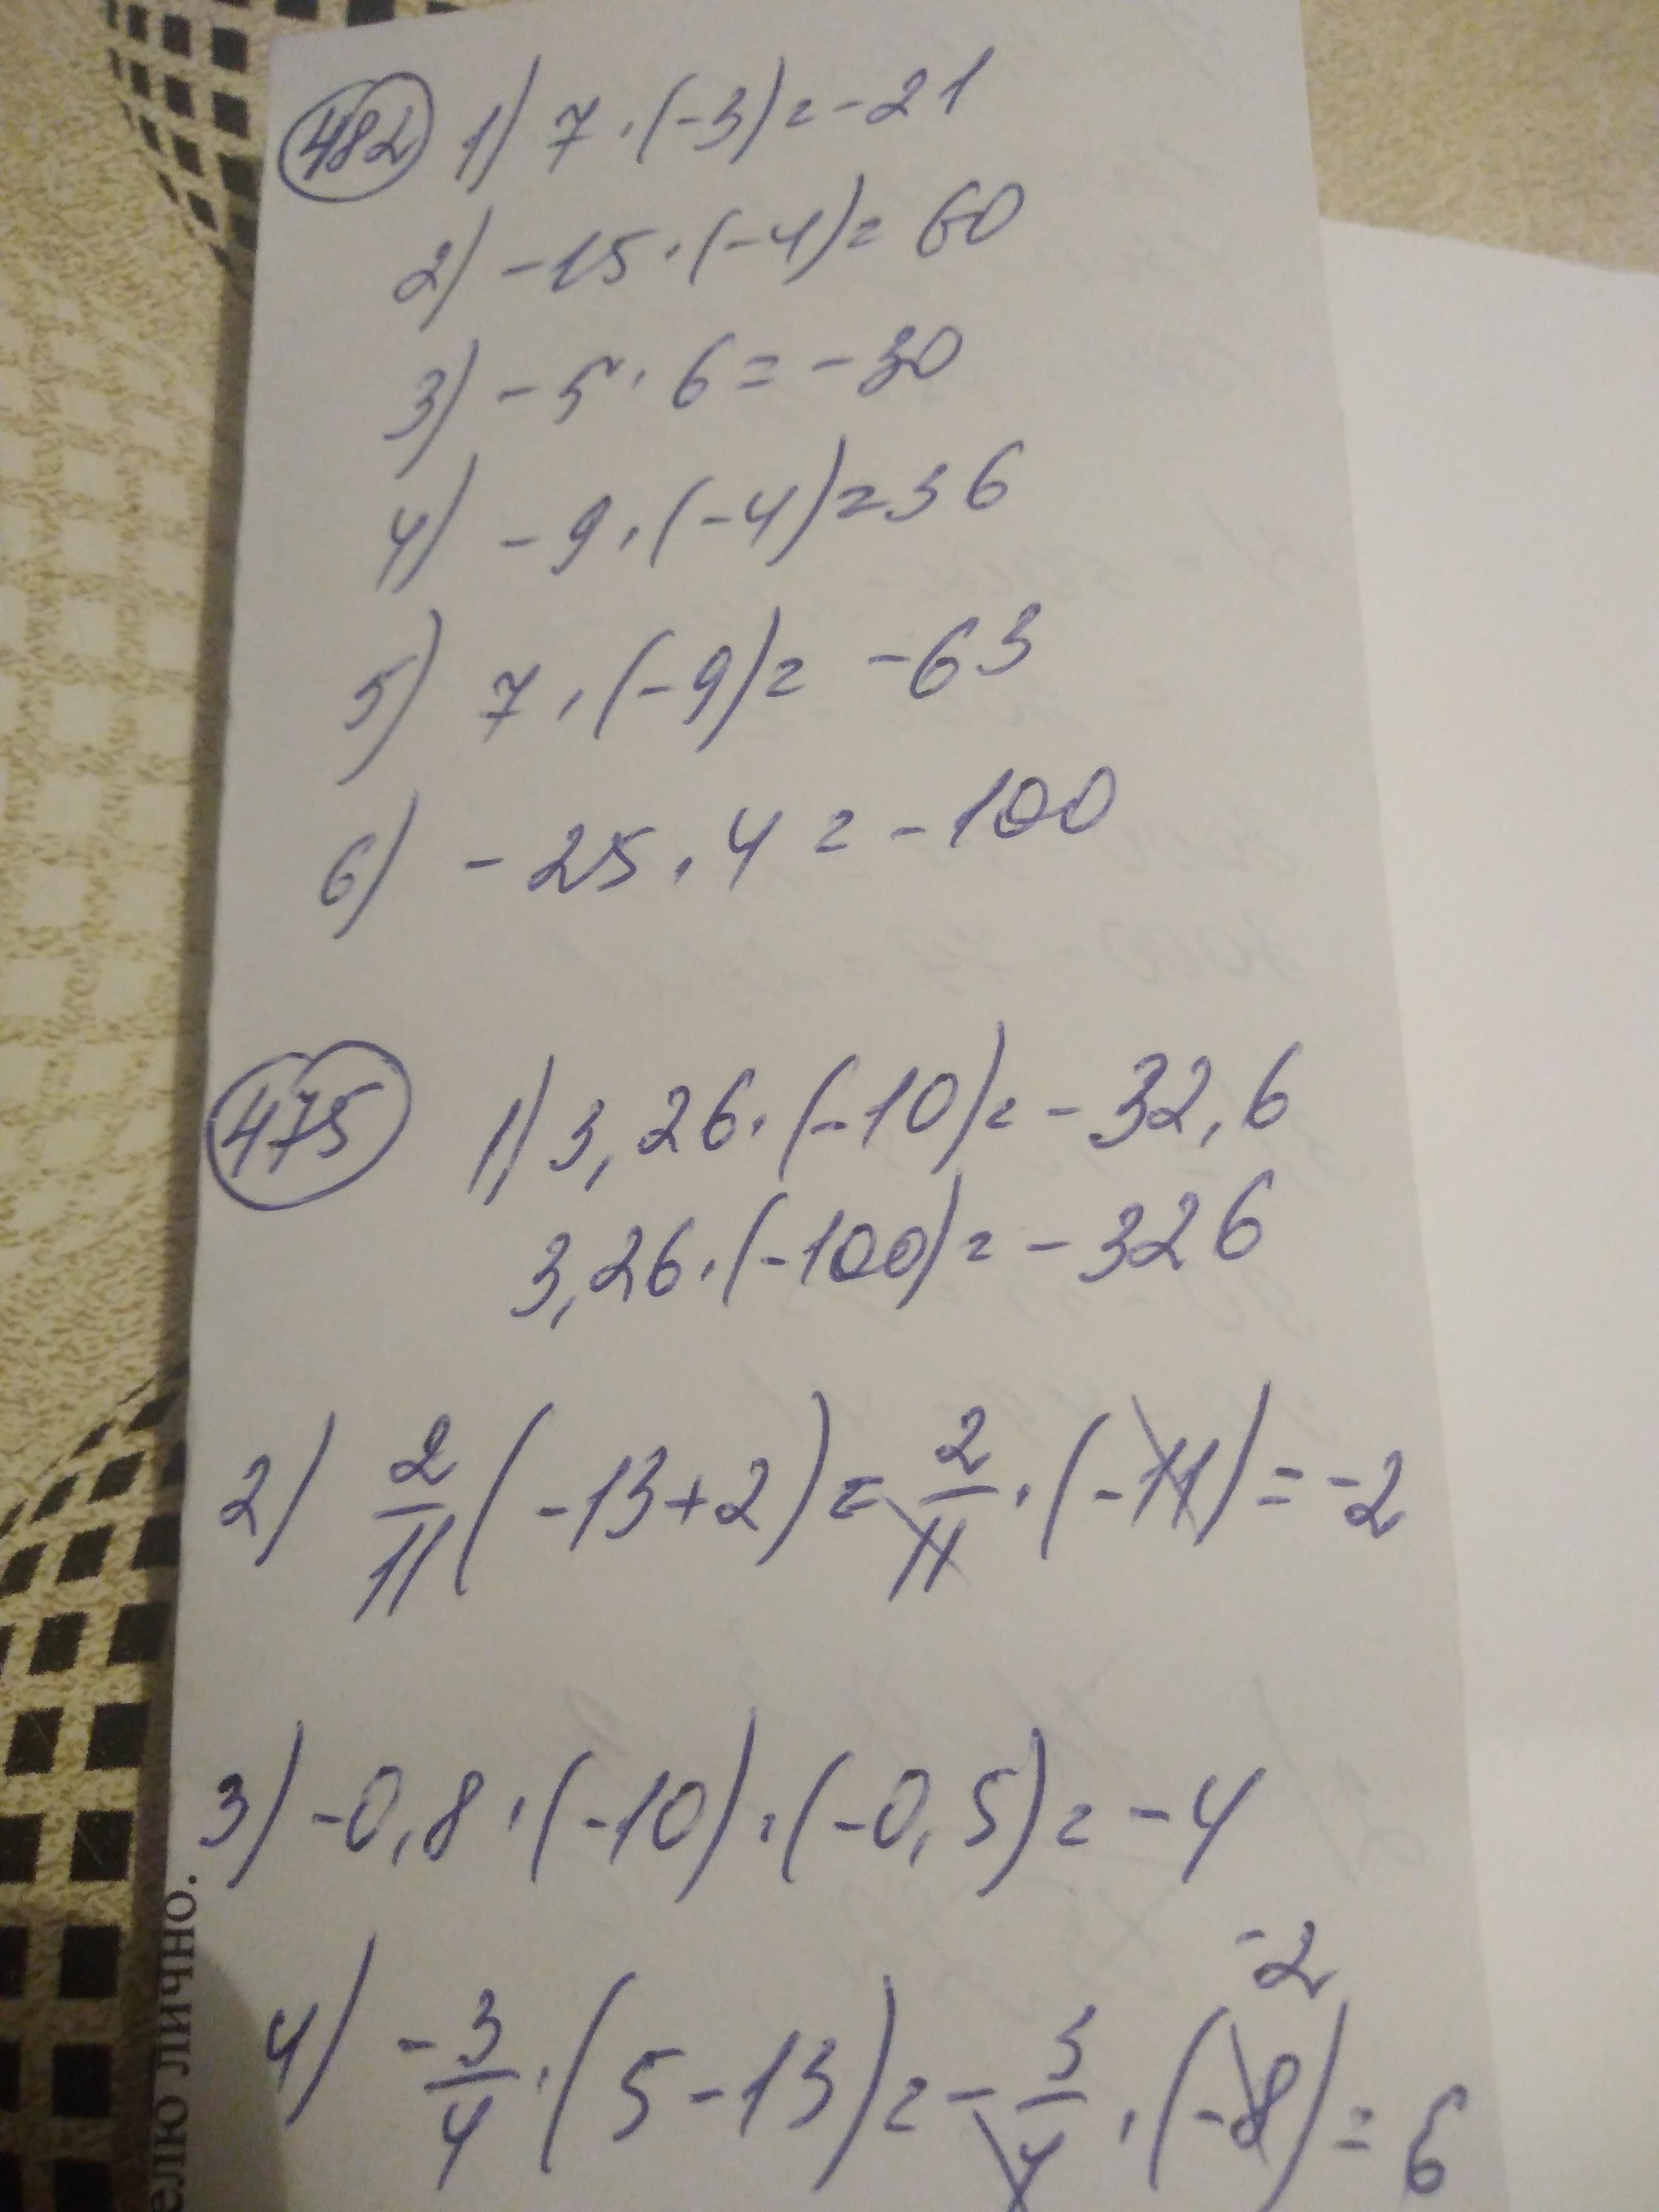 482 1) 7 · (-3) = -21
2) -15 · (-4) = 60
3) -5 · 6 = -30
4) -9 · (-4) = 36
5) 7 · (-9) = -63
6) -25 · 4 = -100
475 1) 3,26 · (-10) = -32,6
3,26 · (-100) = -326
2) 2/11 (-13+2) = 2/11 · (-11) = -2
3) -0,8 · (-10) · (-0,5) = -4
-2
4) -3/4 · (5-13) = -3/4 · (-8) = 6
елю лично.